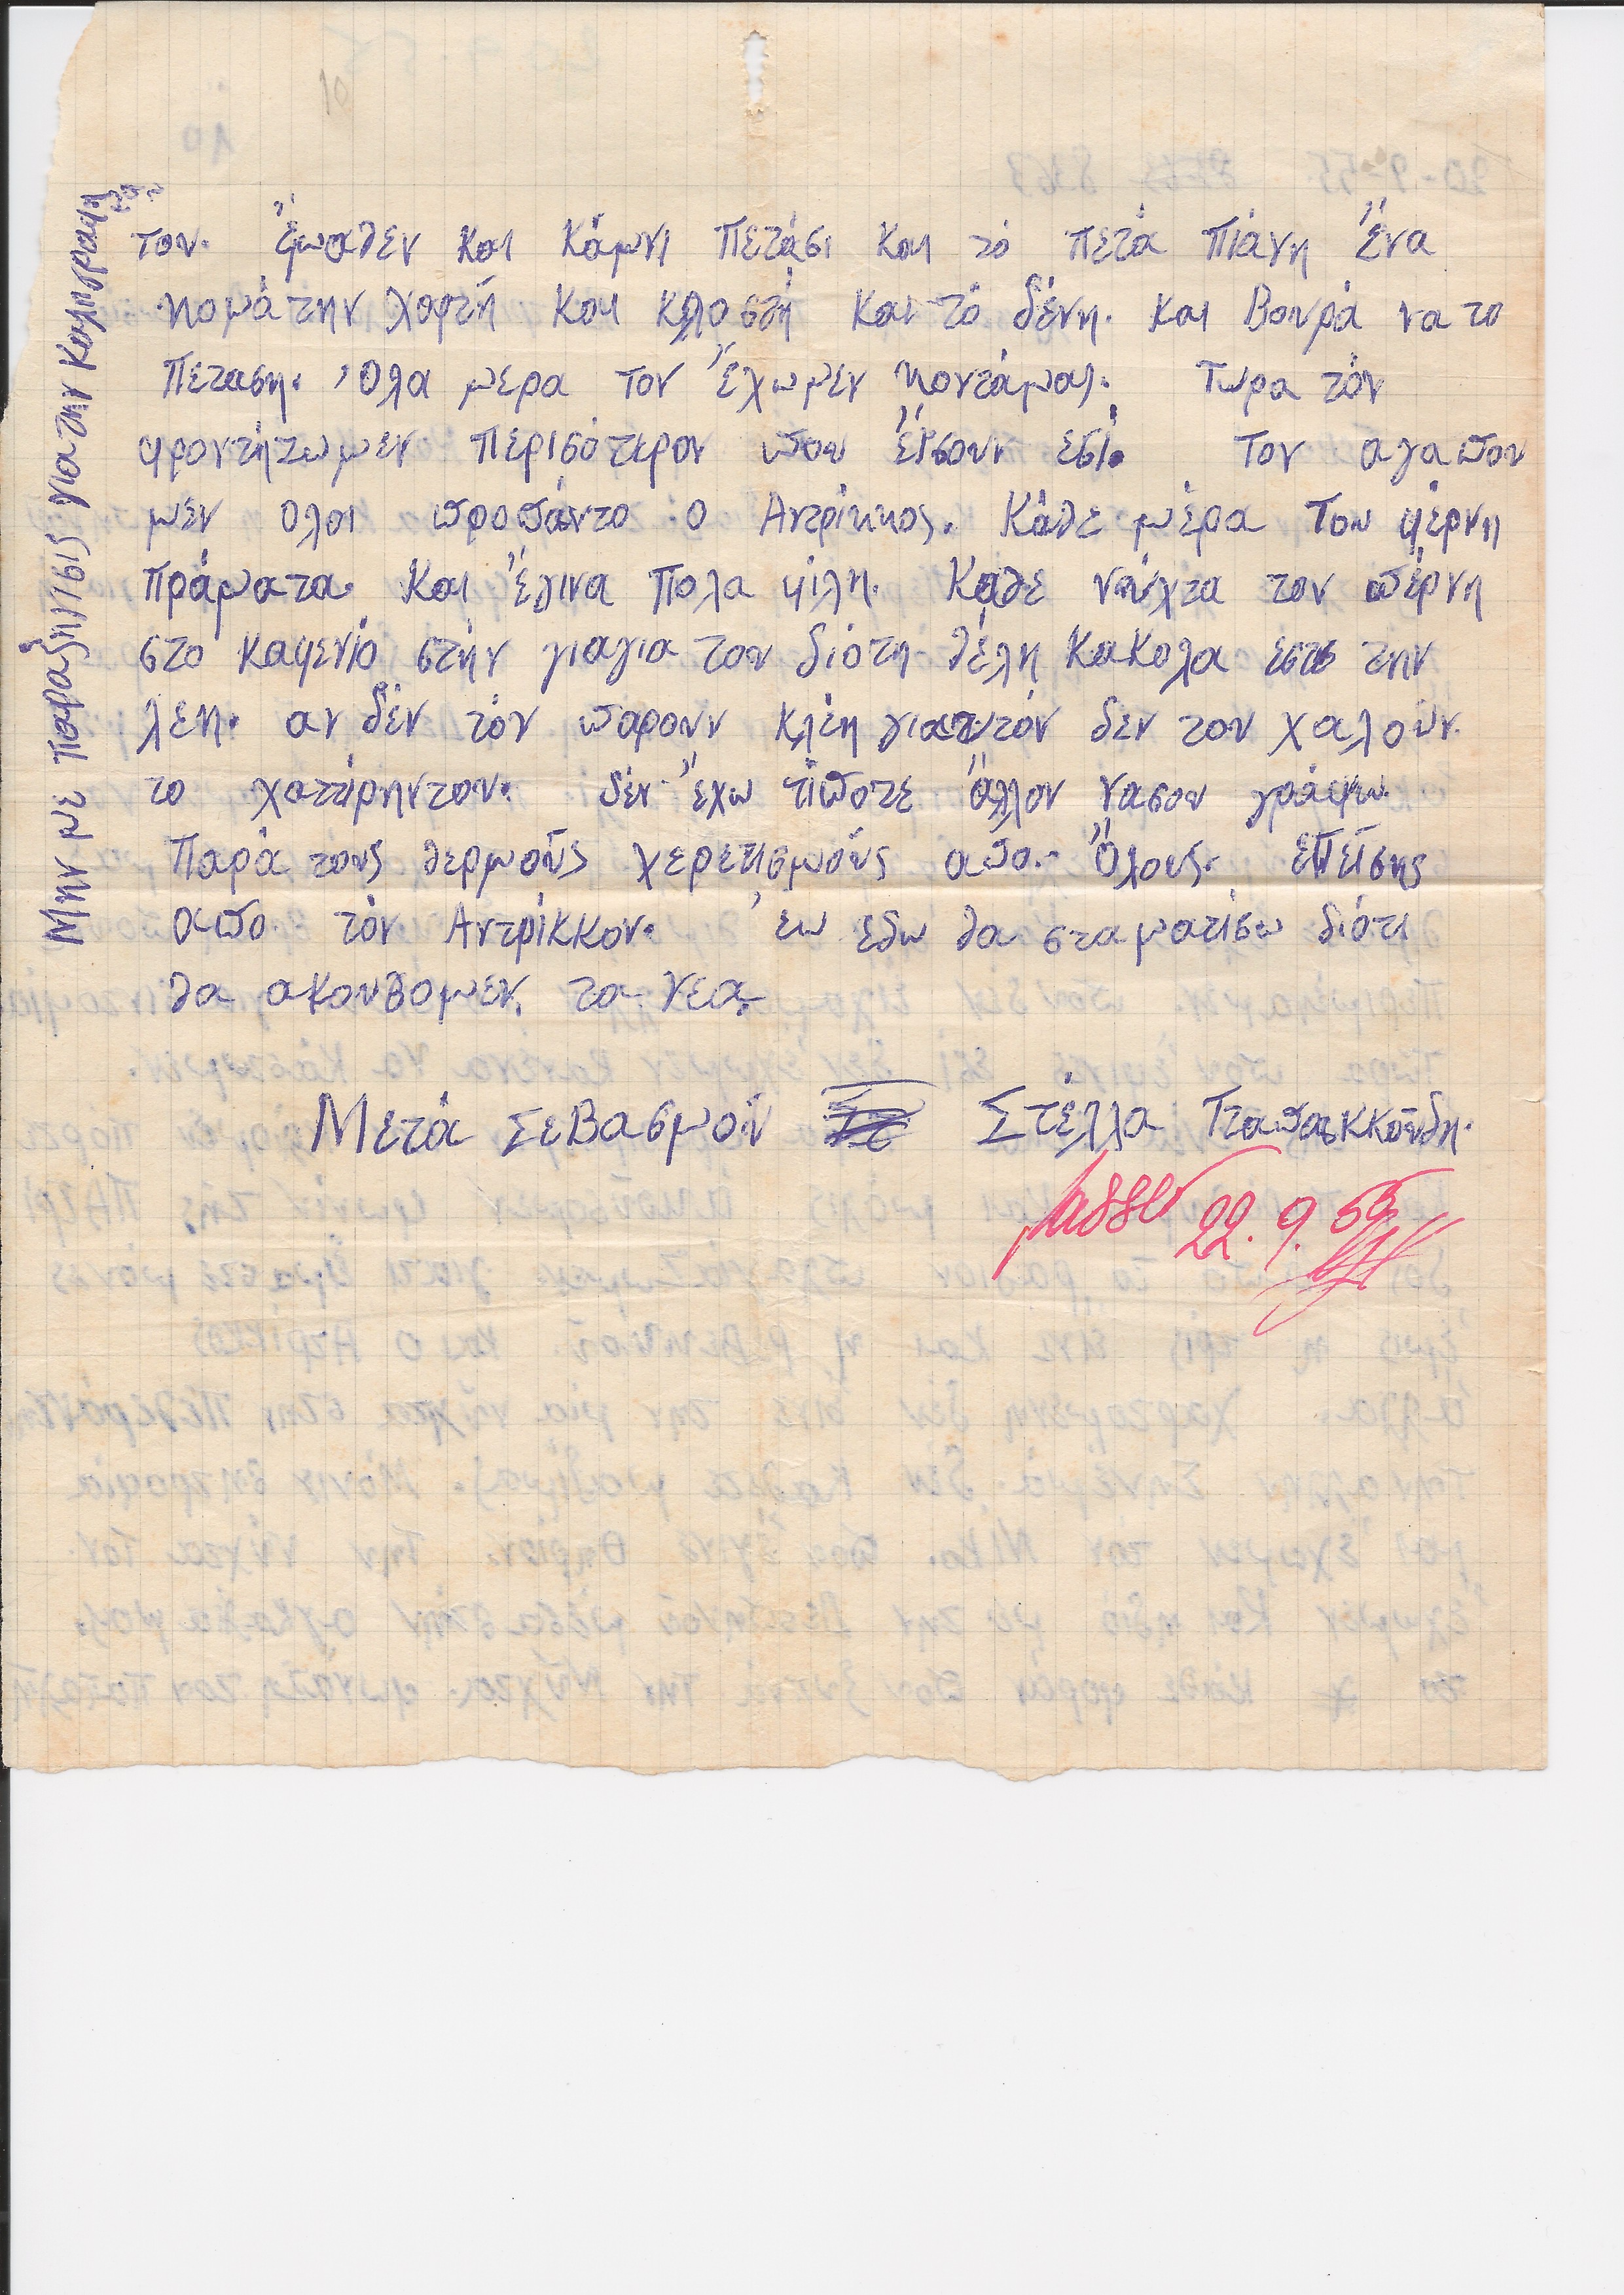 10
του. έμαθεν και κάμνι πετάσι και τό πετά πιάνη ένα
κομάτην χαρτή και κλοστή και τό δένη. και βουρά να το
πεταση. Όλα μερα τον έχωμεν κοντάμας. Τωρα τόν
φροντήζωμεν περισότερον που έισουν εσί. Τον αγαπου
μεν ολοι προπάντο ο Αντρίκκος. Κάθε μέρα Του φέρνη
πράματα. και έγινα πολα φίλη. Κάθε νύχτα τον πέρνη
στο καφενίο στήν γιαγια του διότη θέλη κακολα της
λεη. αν δέν τόν παρουν κλέη γιαυτόν δεν του χαλούν
το χαττίρηντου. δέν έχω τίποτε άλλον νασου γράψω
Παρά τους θερμούς χερετισμούς απο. Όλους. επείσης
απο τόν Αντρίκκον. εω εδω θα σταματίσω διότι
θα ακουβομεν. τα νεα.
Μετά Σεβασμού Στέλλα
passed 22.9.55
Μην με παραξηγίσις για την καληγραφη
του